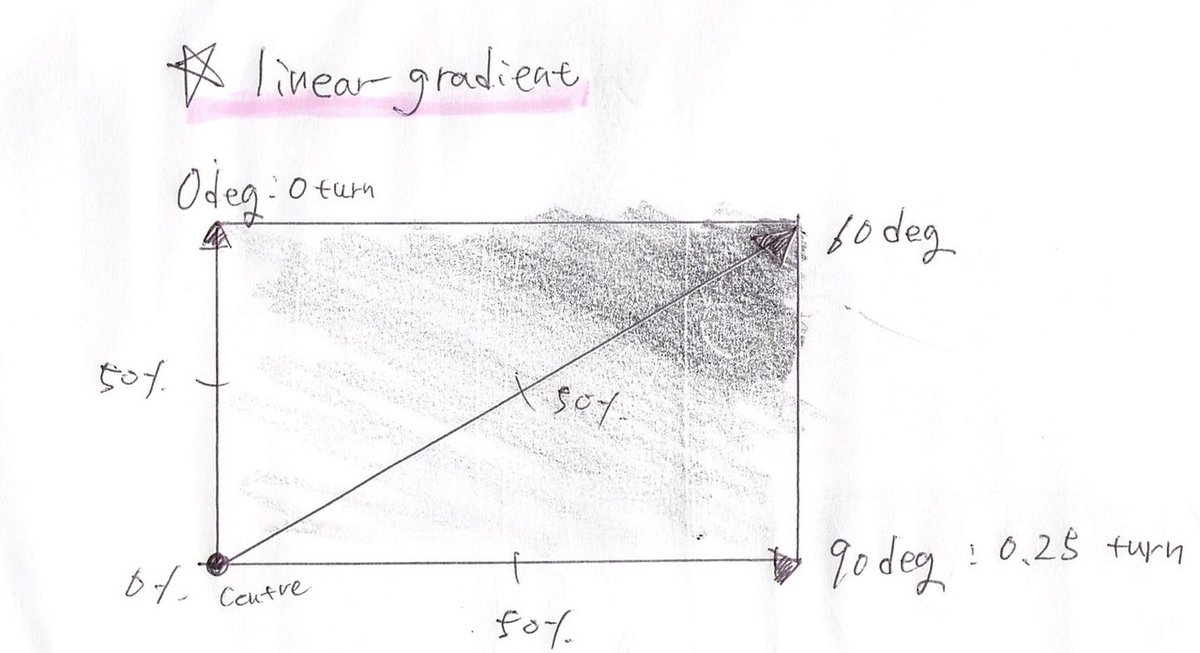 ☆ linear-gradient
0deg: 0 turn
60 deg
50%
50%
90 deg : 0.25 turn
0%
Centre
50%